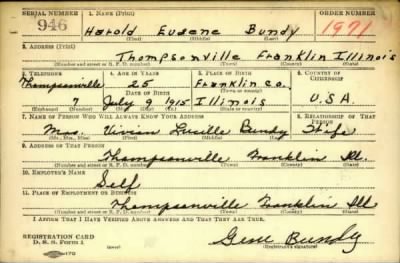 SERIAL NUMBER 1. NAME (Print) ORDER NUMBER
946 Harold Eugene Bundy 1971
(First) (Middle) (Last)
2. ADDRESS (Print)
Thompsonville Franklin Illinois
(Number and street or R. F. D. number) (Town) (County) (State)
3. TELEPHONE 4. AGE IN YEARS 5. PLACE OF BIRTH 6. COUNTRY OF CITIZENSHIP
Thompsonville 25 Franklin Co.
DATE OF BIRTH
7 July 9 1915 Illinois U.S.A.
(Exchange) (Number) (Mo.) (Day) (Yr.) (State or country)
7. NAME OF PERSON WHO WILL ALWAYS KNOW YOUR ADDRESS 8. RELATIONSHIP OF THAT PERSON
Mrs. Vivian Lucille Bundy Wife
(Mr., Mrs., Miss) (First) (Middle) (Last)
9. ADDRESS OF THAT PERSON
Thompsonville Franklin Ill.
(Number and street or R. F. D. number) (Town) (County) (State)
10. EMPLOYER'S NAME
Self
11. PLACE OF EMPLOYMENT OR BUSINESS
Thompsonville Franklin Ill
(Number and street or R. F. D. number) (Town) (County) (State)
I AFFIRM THAT I HAVE VERIFIED ABOVE ANSWERS AND THAT THEY ARE TRUE.
REGISTRATION CARD
D. S. S. Form 1 Gene Bundy
(Registrant's signature)